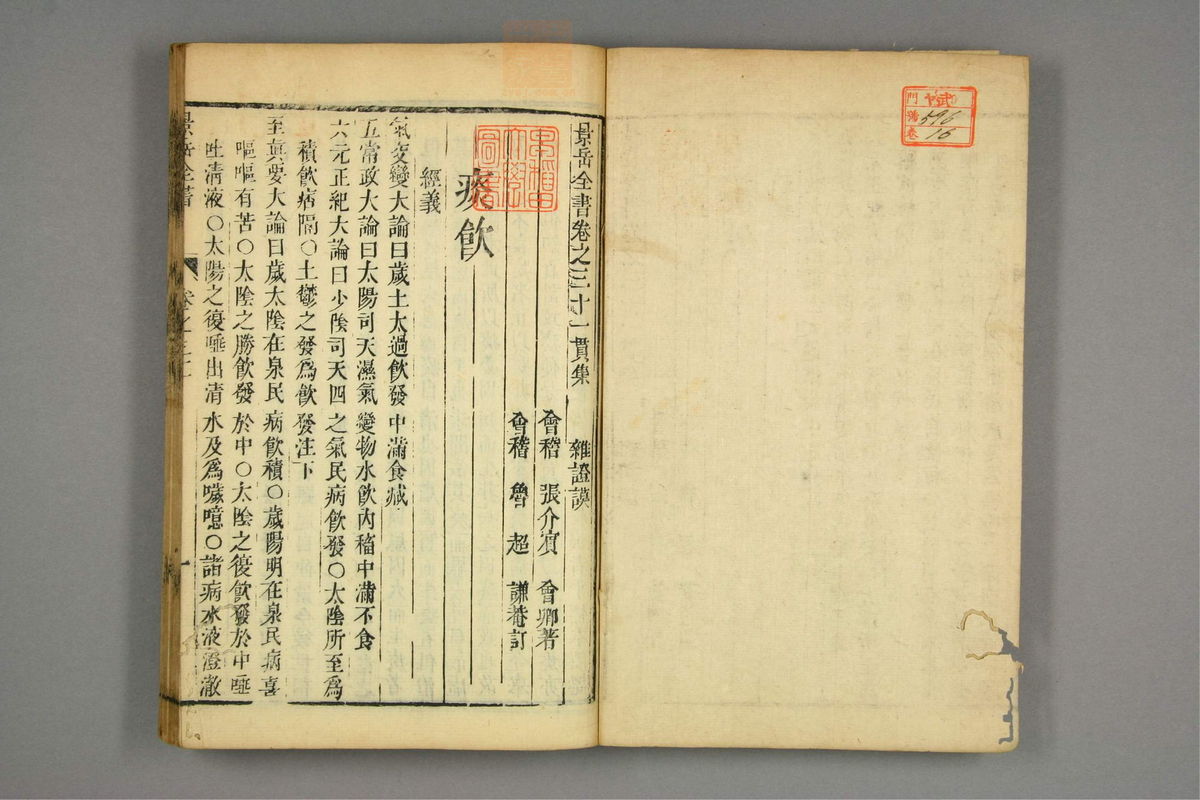 景岳全書卷之三十一貫集　雜證謨
會稽　張介賓　會卿著
會稽　魯　超　謙菴訂
痰飲
經義
氣交變大論曰歲土太過飲發中滿食減
五常政大論曰太陽司天濕氣變物水飲內稸中滿不食
六元正紀大論曰少陰司天四之氣民病飲發○太陰所至為
積飲痞隔○土鬱之發為飲發注下
至真要大論曰歲太陰在泉民病飲積○歲陽明在泉民病喜
嘔嘔有苦○太陰之勝飲發於中○太陰之復飲發於中唾
吐清液○太陽之復唾出清水及為噦噫○諸病水液澄澈
景岳全書
卷之三十一
一
早稲田大學圖書
門
號 596
卷 16